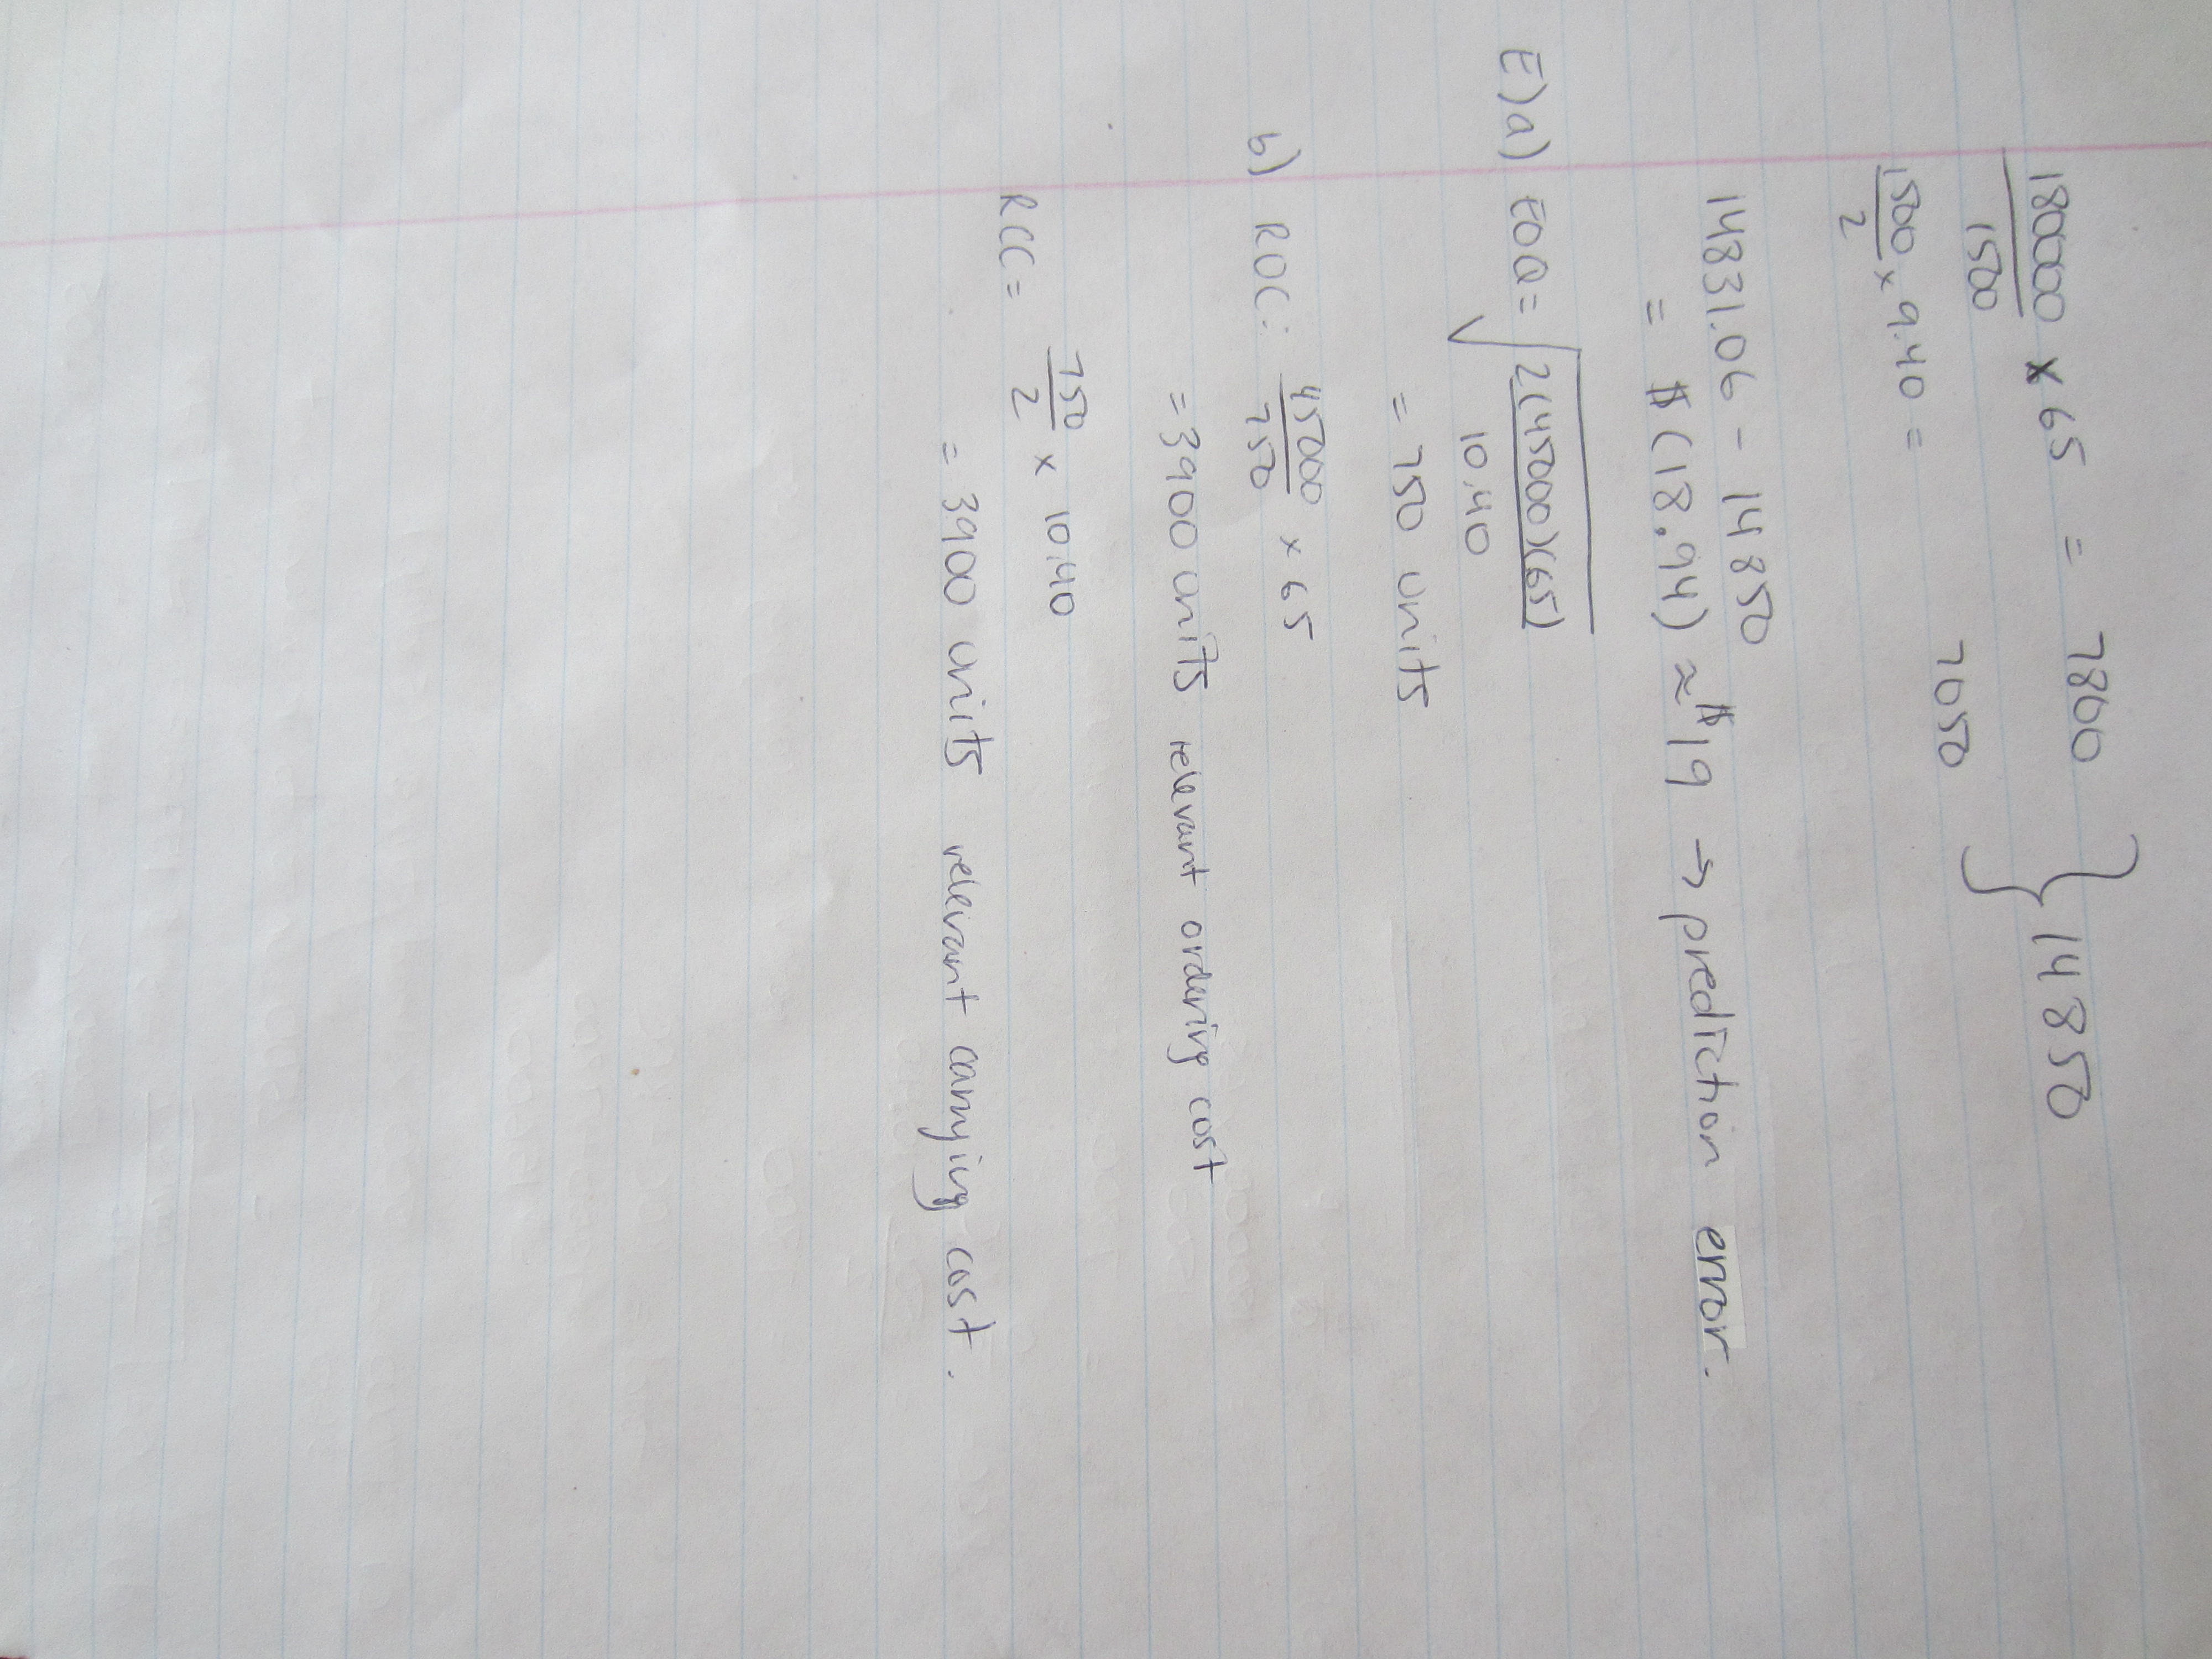 180000 × 65 = 7800
1500
} 14850
1500 × 9.40 = 7050
2
14831.06 - 14850
= $(18.94) ≈ $19 → prediction error.
E)a) EOQ = √2(45000)(65)
10.40
= 750 units
b) ROC: 45000 × 65
750
= 3900 units relevant ordering cost
RCC = 750 × 10.40
2
= 3900 units relevant carrying cost.